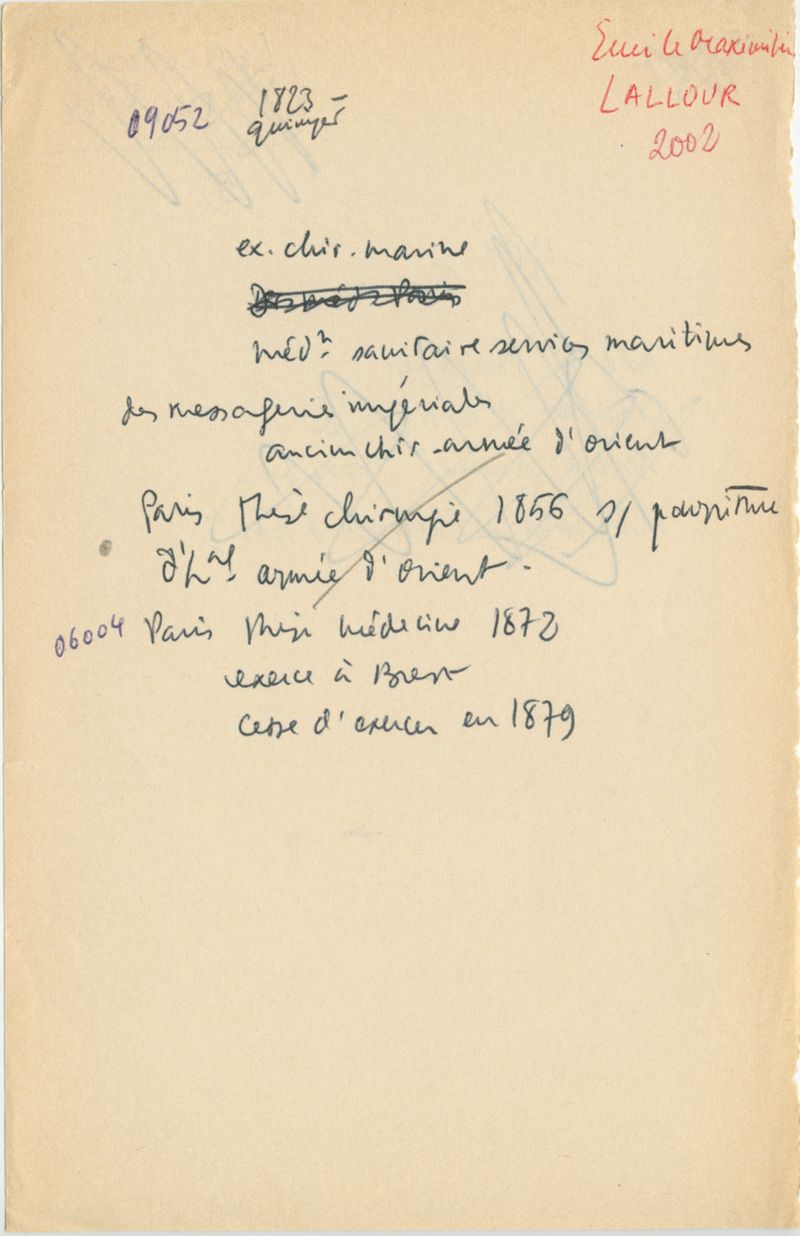 Emile Maximilien
LALLOUR
2002
09052 1823 –
quimper
ex. chir. marine
médn sanitaire services maritimes
des messageries impériales
ancien chir. armée d'orient
Paris thèse chirurgie 1856 s/ pourriture
d'hal armée d'orient.
06004 Paris thèse médecine 1872
exerce à Brest
cesse d'exercer en 1879